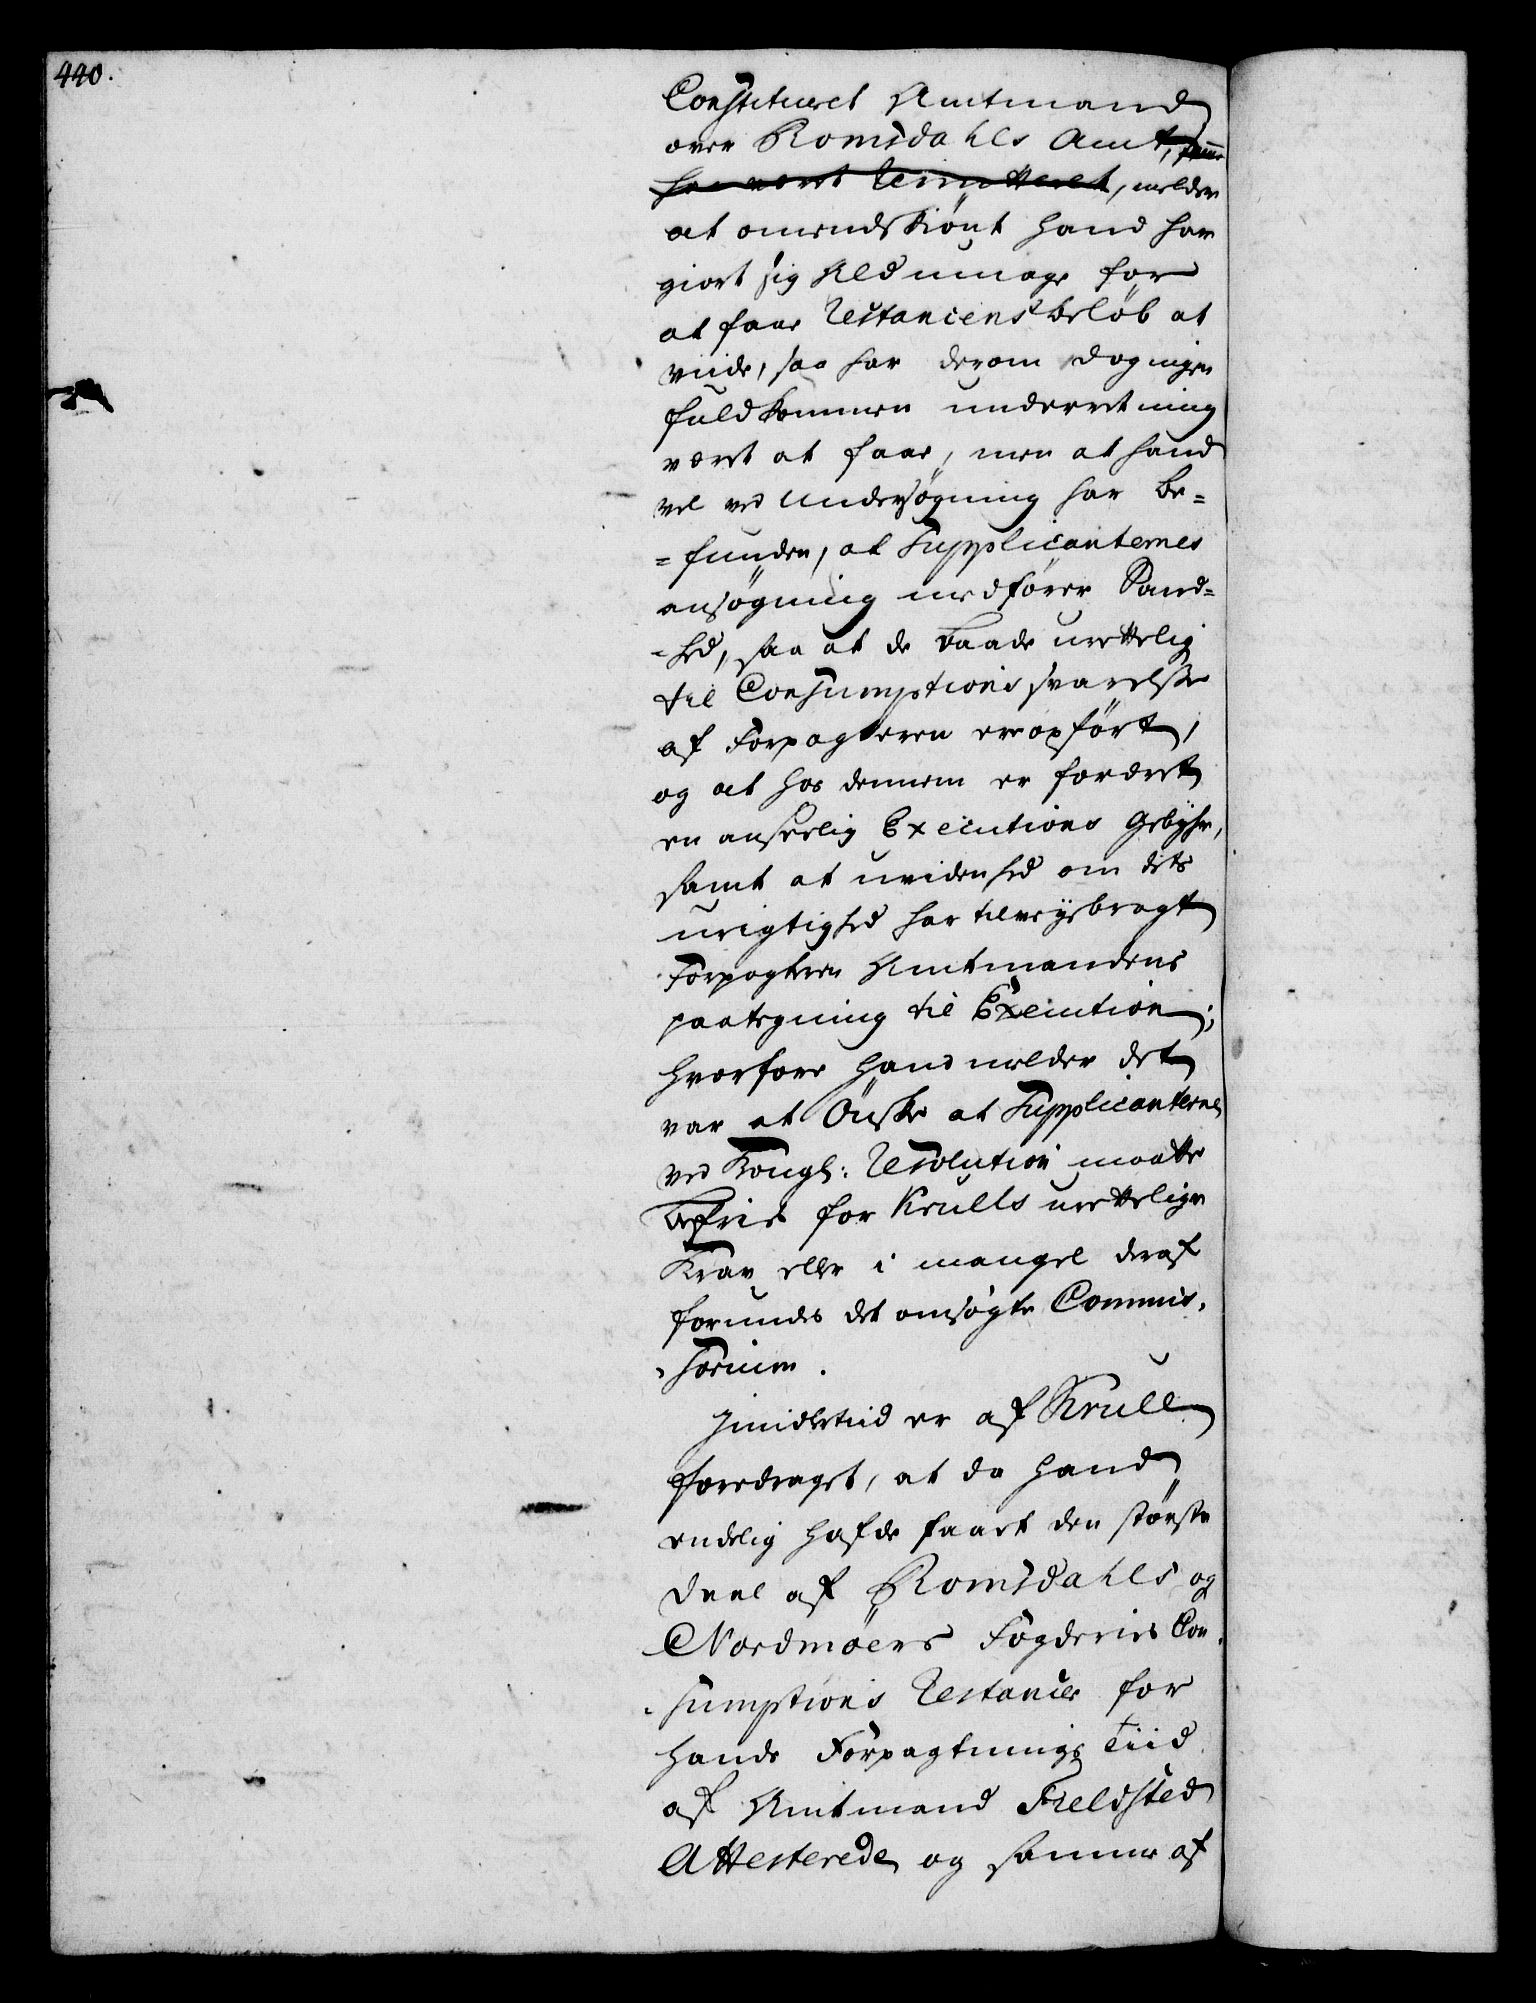 440.
Constitueret Amtmand
over Romsdahls Amt,
har været remitteret, melder
at omendskiønt hand har
giort sig All umage for
at faae Restancens beløb at
viide, saa har derom dog ingen
fuldkommen underretning
vært at faae, men at hand
vel ved Undersøgning har be=
=funden, at Supplicanternes
ansøgning medfører Sand=
=hed, saa at de baade urettelig
til Consumptions svarelse
af Forpagteren ere opført,
og at hos dennem er fordret
en anseelig Executions Gebyhr,
samt at uvidenhed om dets
urigtighed har tilveyebragt
Forpagteren Amtmandens
paategning til Execution;
hvorfore hand melder det
var at Ønske at Supplicanterne
ved Kongl: Resolution maatte
befries for Krulls urettelige
Krav eller i mangel deraf
forundes det omsøgte Commis=
=sorium.
Imidlertiid er af Krull
foredraget, at da hand
endelig hafde faaet den største
Deel af Romsdahls og
Nordmøers Fogderies Con=
=sumptions Restance for
hands Forpagtnings Tiid
af Amtmand Fieldsted
Attesterede og samme af